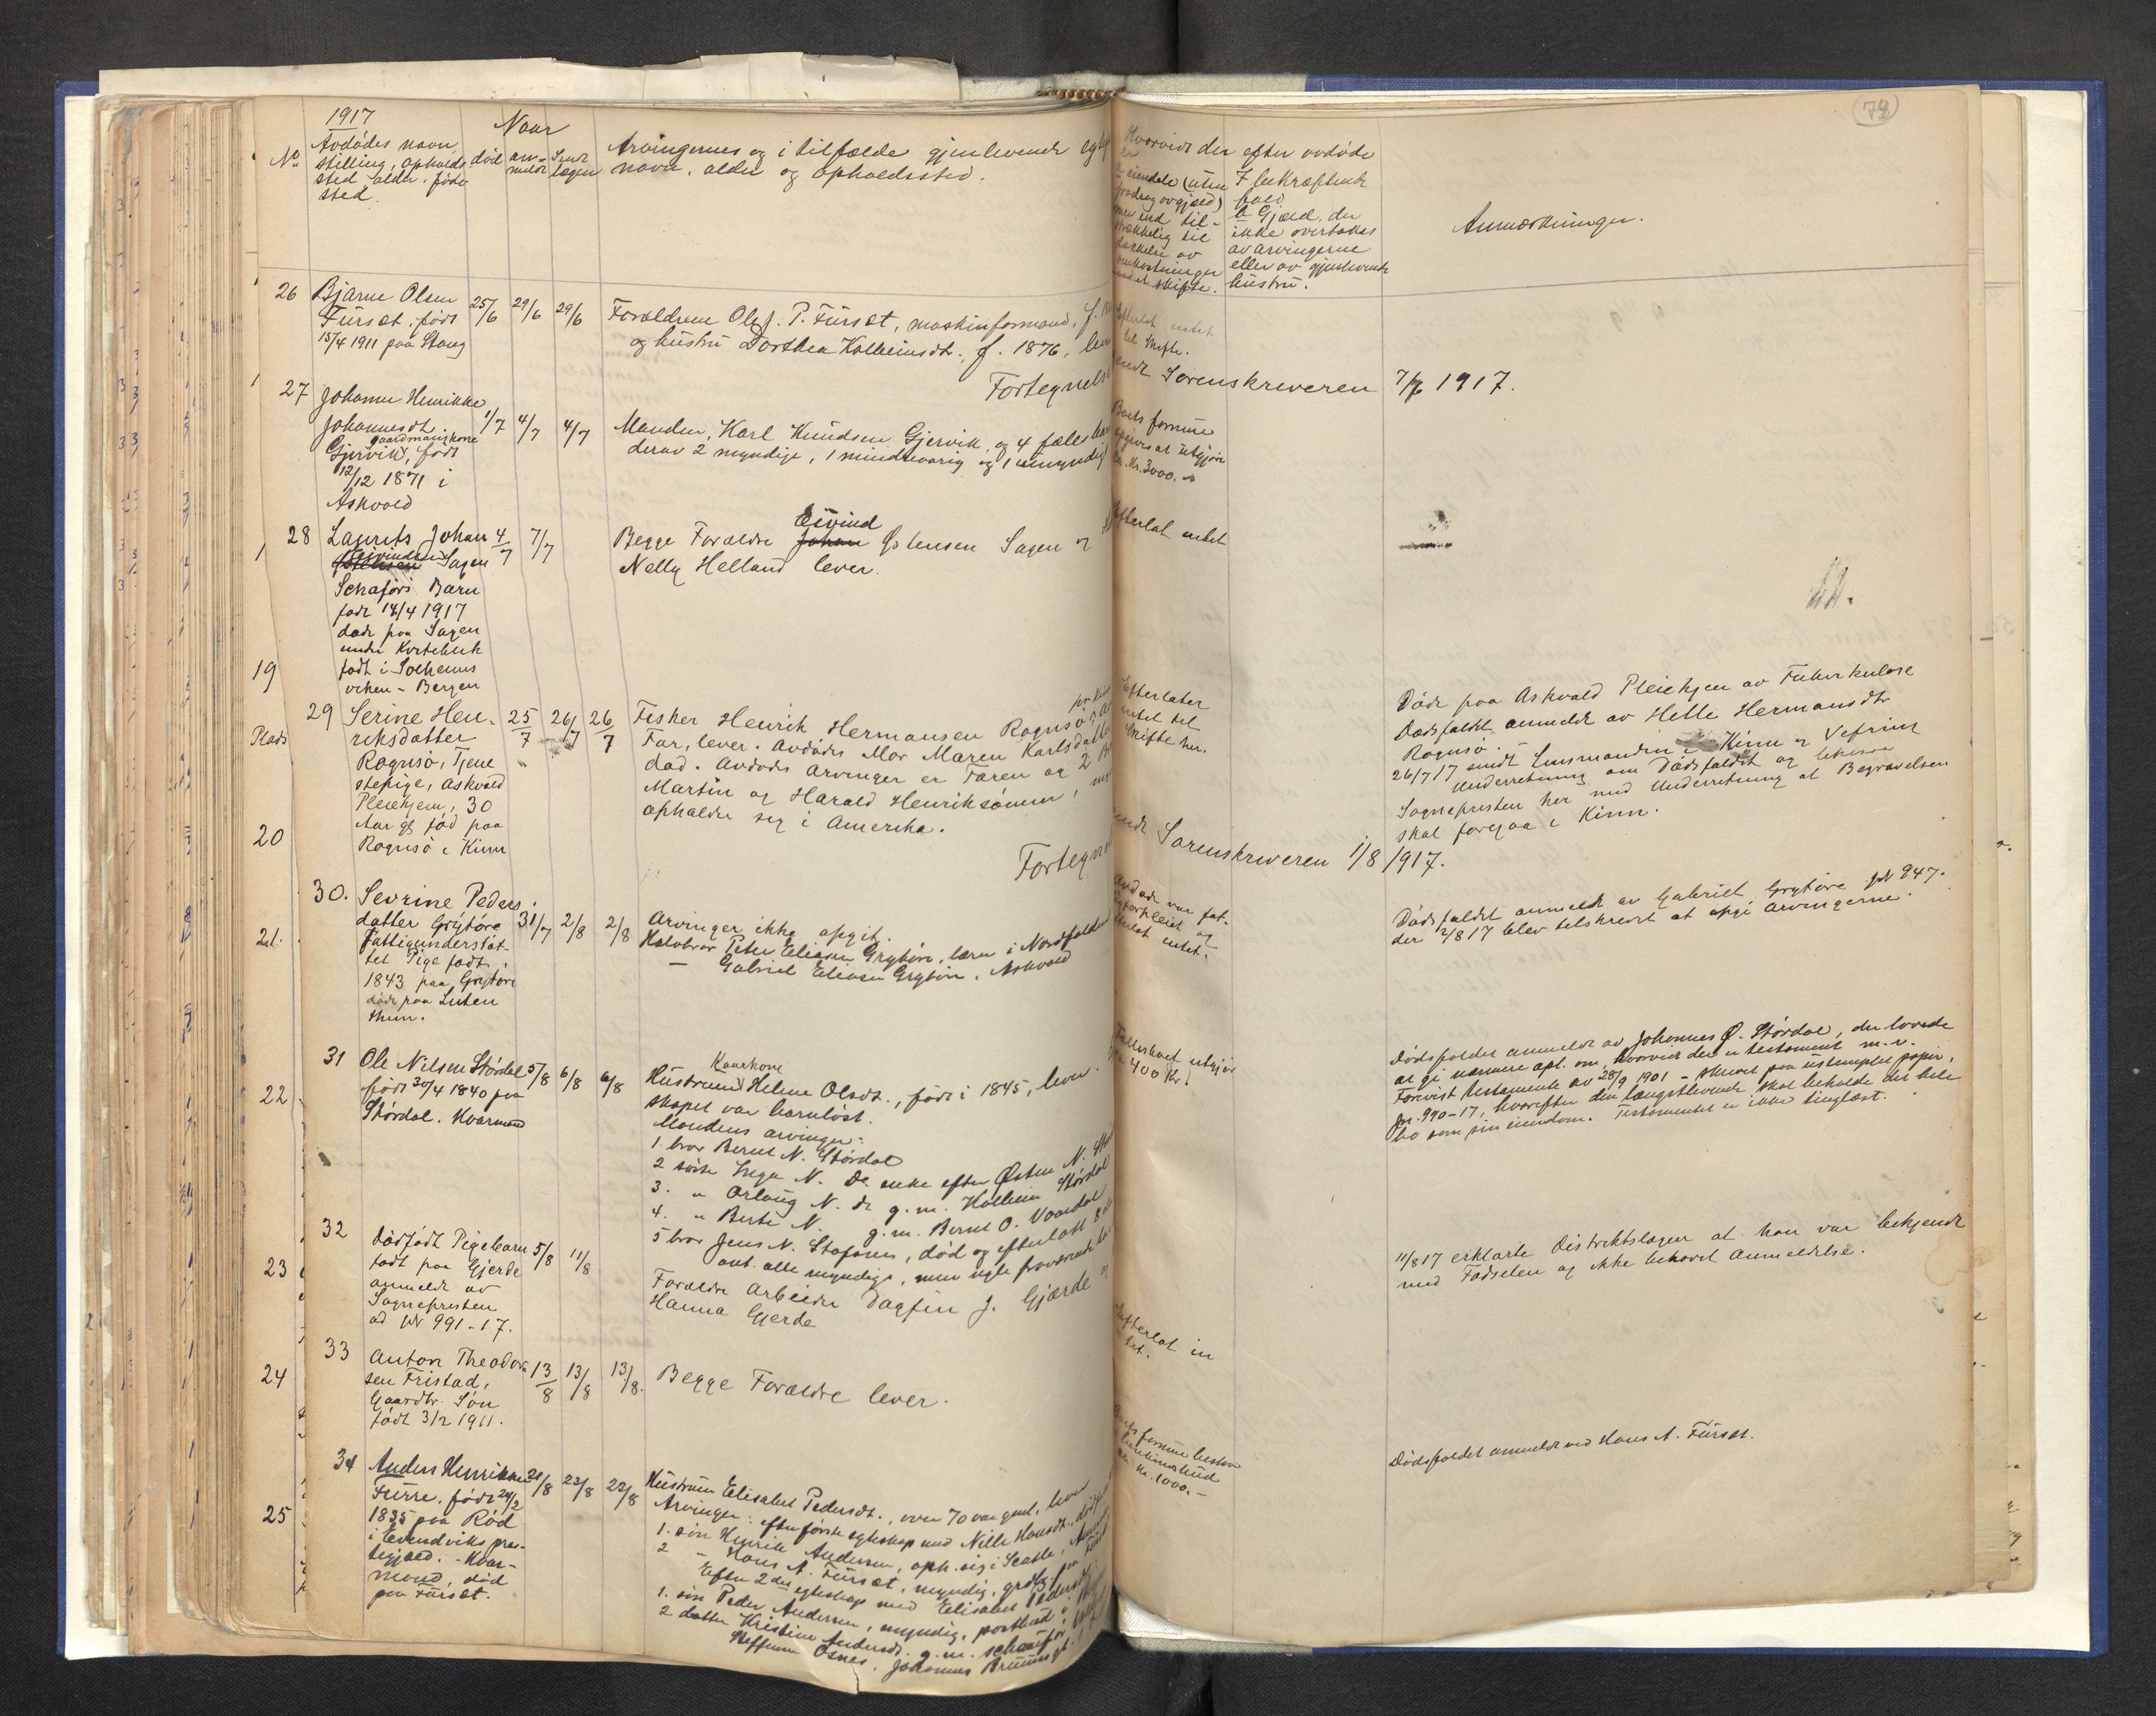 79
1917
Naar
No
Avdødes navn,
stilling, opholds
sted, alder, føde
sted.
død
an-
meldt
Sendt
lægen
Arvingernes og i tilfælde gjenlevende
navn, alder og opholdsted.
Hvorvidt der efter avdøde
er
eiendele (uten
fradrag av gjæld)
mer end til-
strækkelig til
dækkelse av
omkostninger
ved et skifte.
I bekræftende
fald
b Gjæld, der
ikke overtakes
av arvingerne
eller av gjenlevende
hustru.
Anmærkninger.
26 Bjarne Olsen 25/6 29/6 29/6
Fürset, født
15/4 1911 paa Stang
Forældrene Ole J. P. Fürset, maskinformand,
og hustru Dorthea Kolbeinsdt., f. 1876,
Efterlot intet
til skifte.
Fortegnelse
sendt Sorenskriveren 7/7 1917.
27 Johanne Henrikke
Johannesdt. 1/7 4/7 4/7
gaardmandskone
Gjervik, født
12/12 1871 i
Askvold
Manden, Karl Knudsen Gjervik, og 4 fælles
derav 2 myndige, 1 mindreaarig og 1 umyndig
Boets formue
opgives at utgjøre
ca. Kr. 3000.-
28 Laurits Johan 4/7 7/7
Eivindsen Sagen
Schaførs Barn
født 18/4 1917
død paa Sagen
under Kvitebek
født i Solheims
viken - Bergen
Eivind
Begge Forældre Johan Gotensen Sagen og
Nelly Helland lever.
Efterlot intet
19
29 Serine Hen- 25/7 26/7 26/7
riksdatter
Rognsø, Tjene
stepige, Askvold
Pleiehjem, 30
Aar gl fød paa
Rognsø i Kinn
Plads
Fisker Henrik Hermansen Rognsø
Far, lever. Avdødes Mor Maren Karlsdatter
død. Avdødes Arvinger er Faren og 2
Martin og Harald Henriksønner,
opholder seg i Amerika.
Efterlater
intet til
Skifte her.
Døde paa Askvold Pleiehjem av Tuberkulose
Dødsfaldet anmeldt av Helle Hermansdtr
Rognsø.
26/7 17 sendt Lensmanden i Kinn og Vefring
Underretning om Dødsfaldet og likesaa
Sognepresten her med Underretning at Begravelsen
skal foregaa i Kinn.
Fortegnelse
sendt Sorenskriveren 1/8 1917.
20
30. Sevrine Peders-
datter Grytøre 31/7 2/8 2/8
Fattigunderstøt-
tet Pige født
1843 paa Grytøre
døde paa Liten
Arvinger ikke opgit.
Halvbror Peter Eliasen Grytøre, lærer i Nordfolden
— Gabriel Eliasen Grytøre, Askvold
Avdøde var fat-
tigforpleiet og
efterlot intet.
Dødsfaldet anmeldt av Gabriel Grytøre JN 947.
der 2/8 17 blev tilskrevet at opgi Arvingerne.
21.
31 Ole Nilsen Størdal 5/8 6/8 6/8
født 30/4 1840 paa
Størdal. Kaarmand
Kaarkone
Hustruen Helene Olsdt., født i 1845, lever.
skapet var barnløst.
Mandens arvinger:
1. bror Bernt N. Størdal
2 søster Inga N. Dt. enke efter Østen N.
3. " Orlaug N. dt g.m. Kolbein Størdal
4. " Berte N. g.m. Bernt O. Vaardal
5 bror Jens N. Stafsnes, død og efterlatt 8
ant. alle myndige, men ugle fraværende
Fællesboet utgjør
ca 400 Kr.
Dødsfaldet anmeldt av Johannes O. Størdal, der lovede
at gi nærmere opl. om, hvorvidt der er testament m.v.
Forevist testamente av 28/9 1901 - skrevet paa ustemplet papir,
jnr. 990-17, hvorefter den længstlevende skal beholde det hele
bo som sin eiendom. Testamentet er ikke tinglæst.
22
32 Dødfødt Pigebarn 5/8 11/8
født paa Gjerde
anmeldt av
Sognepresten
ad JN 991-17.
Forældre Arbeider Dagfin J. Gjærde og
Hanna Gjerde
11/8 17 erklærte Distriktslægen at han var bekjendt
med Fødselen og ikke behøvet Anmeldelse.
23
33 Anton Theodor- 13/8 13/8 13/8.
sen Fristad,
Gaardbr. Søn
født 3/2 1911.
Begge Forældre lever.
Efterlot in
tet.
24
34 Anders Henriksen 21/8 22/8 22/8
Fürre, født 24/2
1835 paa Rød
i Eivindviks pres-
tegjæld. - Kaar-
mand, død
paa Fürset.
Hustruen Elisabet Pedersdt., over 70 aar gml, lever
Arvinger: efter første egteskap med Nille Hansdt., død
1. søn Henrik Andersen, oph. sig i Seatle, Amerika
2 " Hans A. Fürset, myndig, grdbr. paa Fürset
Efter 2det egteskap med Elisabet Pedersdt.
1. søn Peder Andersen, myndig, postbud i
2 datter Kristine Andersdt. g.m. schauffør
Steffenn Osnes, Johannes Bruunsgt.
Boets formue bestaar
ca. Kr. 1000.-
Dødsfaldet anmeldt ved Hans A. Fürset.
25